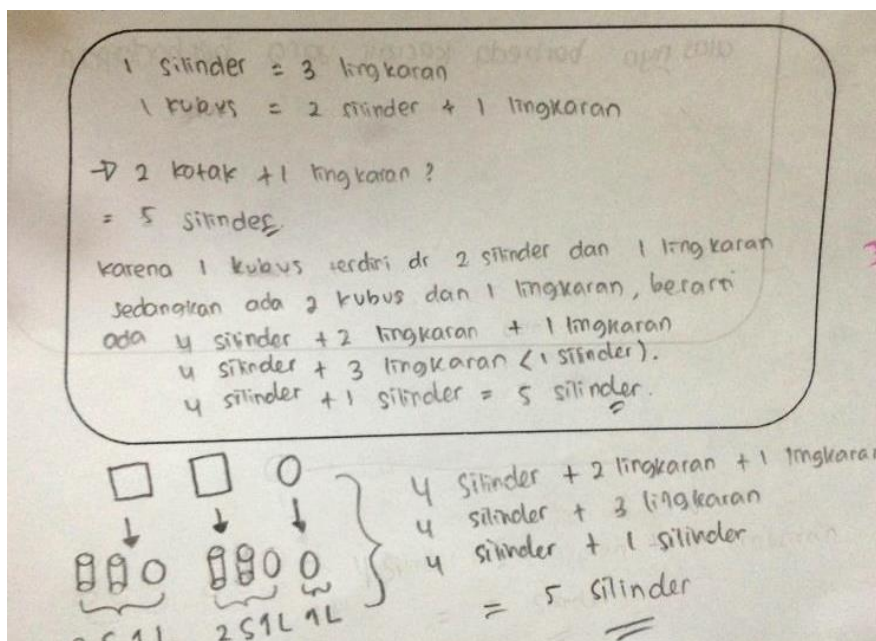 1 silinder = 3 lingkaran
1 kubus = 2 silinder + 1 lingkaran
→ 2 kotak + 1 lingkaran ?
= 5 silinder
karena 1 kubus terdiri dr 2 silinder dan 1 lingkaran
sedangkan ada 2 kubus dan 1 lingkaran, berarti
ada 4 silinder + 2 lingkaran + 1 lingkaran
4 silinder + 3 lingkaran (1 silinder).
4 silinder + 1 silinder = 5 silinder.
4 silinder + 2 lingkaran + 1 lingkaran
4 silinder + 3 lingkaran
4 silinder + 1 silinder
= 5 silinder
2S 1L 2S 1L 1L